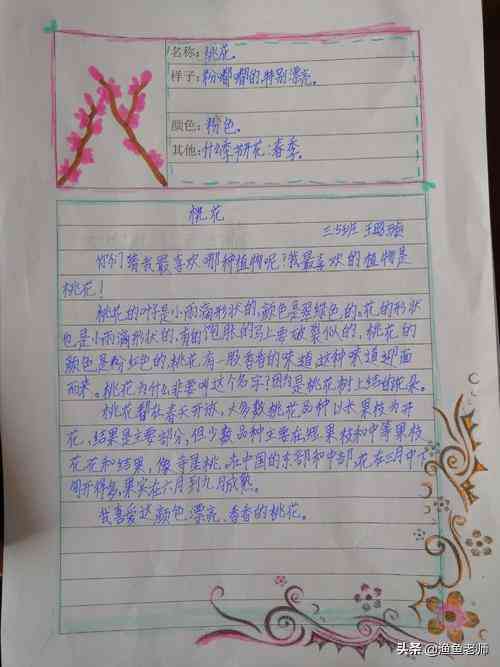 名称：桃花。
样子：粉嘟嘟的，特别漂亮。
颜色：粉色。
其他：什么季节开花：春季。
桃花
三5班 王
你们猜我最喜欢哪种植物呢？我最喜欢的植物是
桃花！
桃花的叶子是小雨滴形状的，颜色是翠绿色的。花的形状
也是小雨滴形状的，有的饱胀的马上要破裂似的，桃花的
颜色是粉红色的，桃花有一股香香的味道，这种味道迎面
而来。桃花为什么非要叫这个名字？因为是桃花树上结的花朵。
桃花都在春天开放，大多数桃花品种以长果枝为开
花，结果是主要部分，但少数品种主要在短果枝和中等果枝
花花和结果，像寺是桃。在中国的东部和中部，花在三月中下
旬开得多，果实在六月到九月成熟。
我喜爱这颜色漂亮、香香的桃花。
头条 @渔鱼老师